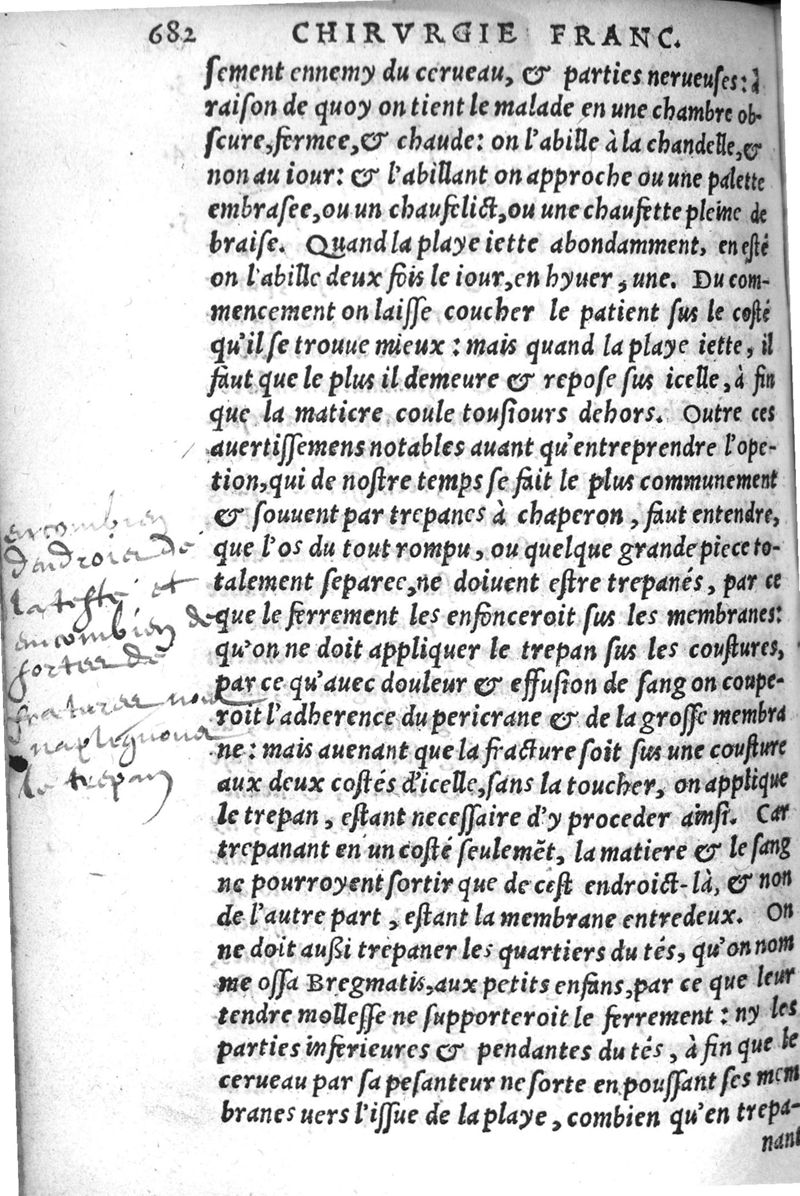 682 CHIRVRGIE FRANC.
ſement ennemy du cerueau, & parties nerueuſes: à
raiſon de quoy on tient le malade en une chambre ob-
ſcure, fermee, & chaude: on l'abille à la chandelle, &
non au iour: & l'abillant on approche ou une palette
embraſee, ou un chaufelict, ou une chaufette pleine de
braiſe. Quand la playe iette abondamment, en eſté
on l'abille deux fois le iour, en hyuer, une. Du com-
mencement on laiſſe coucher le patient ſus le coſté
qu'il ſe trouue mieux: mais quand la playe iette, il
faut que le plus il demeure & repoſe ſus icelle, à fin
que la matiere coule touſiours dehors. Outre ces
auertiſſemens notables auant qu'entreprendre l'ope-
tion, qui de noſtre temps ſe fait le plus communement
& ſouuent par trepanes à chaperon, faut entendre,
que l'os du tout rompu, ou quelque grande piece to-
talement ſeparee, ne doiuent eſtre trepanés, par ce
que le ferrement les enfonceroit ſus les membranes:
qu'on ne doit appliquer le trepan ſus les couſtures,
par ce qu'auec douleur & effuſion de ſang on coupe-
roit l'adherence du pericrane & de la groſſe membra
ne: mais auenant que la fracture ſoit ſus une couſture
aux deux coſtés d'icelle, ſans la toucher, on applique
le trepan, eſtant neceſſaire d'y proceder ainſi. Car
trepanant en un coſté ſeulemẽt, la matiere & le ſang
ne pourroyent ſortir que de ceſt endroict-là, & non
de l'autre part, eſtant la membrane entredeux. On
ne doit außi trepaner les quartiers du tés, qu'on nom
me oſſa Bregmatis, aux petits enfans, par ce que leur
tendre molleſſe ne ſupporteroit le ferrement: ny les
parties inferieures & pendantes du tés, à fin que le
cerueau par ſa peſanteur ne ſorte en pouſſant ſes mem
branes uers l'iſſue de la playe, combien qu'en trepa-
nant
en combien
de
la teſte et
en combien de
ſortes de
fractures nous
le trepan